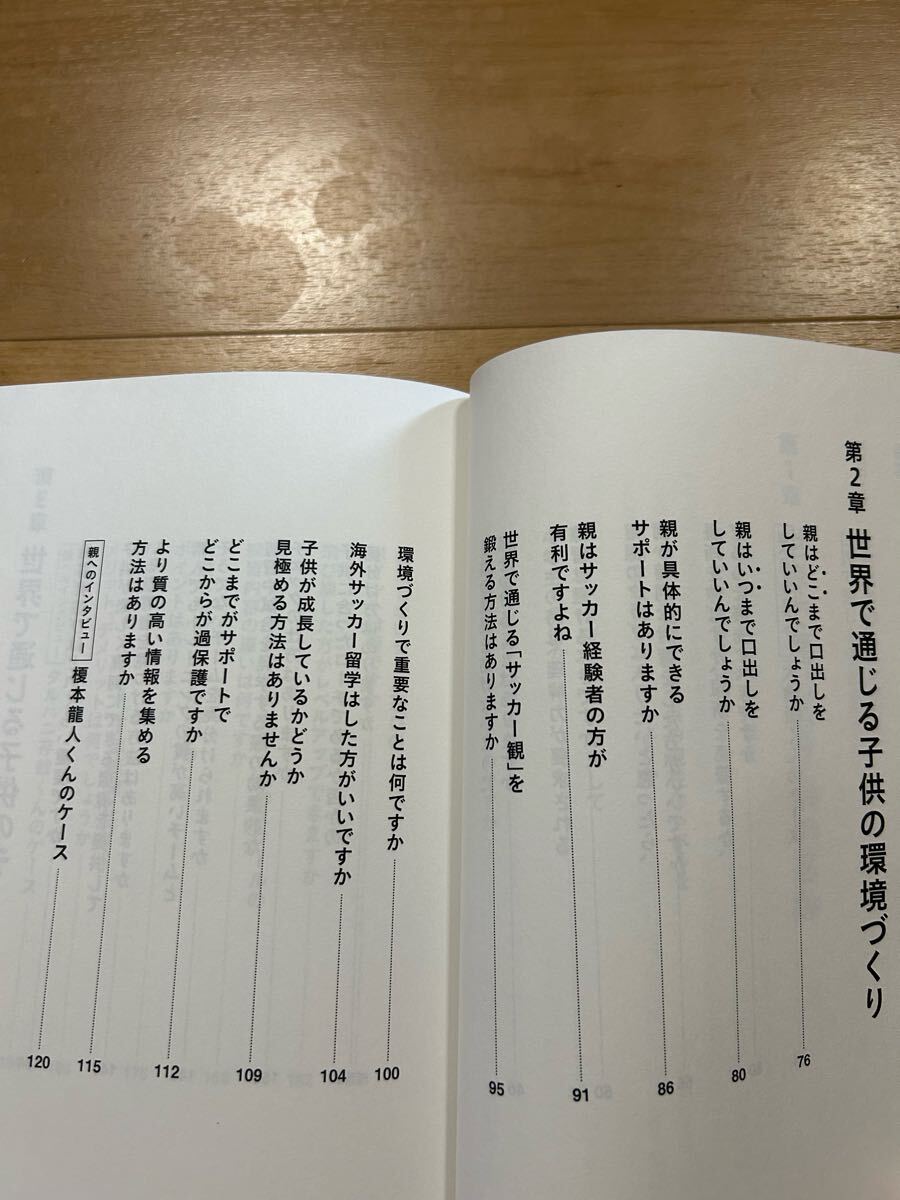 第2章 世界で通じる子供の環境づくり
親はどこまで口出しを
していいんでしょうか 76
親はいつまで口出しを
していいんでしょうか 80
親が具体的にできる
サポートはありますか 86
親はサッカー経験者の方が
有利ですよね 91
世界で通じる「サッカー観」を
鍛える方法はありますか 95
環境づくりで重要なことは何ですか 100
海外サッカー留学はした方がいいですか 104
子供が成長しているかどうか
見極める方法はありませんか 109
どこまでがサポートで
どこからが過保護ですか 112
より質の高い情報を集める
方法はありますか 115
親へのインタビュー 榎本龍人くんのケース 120